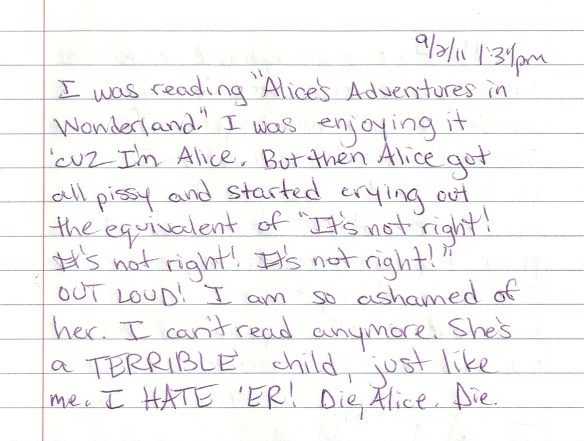 9/2/11 1:31pm
I was reading "Alice's Adventures in
Wonderland." I was enjoying it
'cuz I'm Alice. But then Alice got
all pissy and started crying out
the equivalent of "It's not right!
It's not right! It's not right!"
OUT LOUD! I am so ashamed of
her. I can't read anymore. She's
a TERRIBLE child, just like
me. I HATE 'ER! Die, Alice. Die.